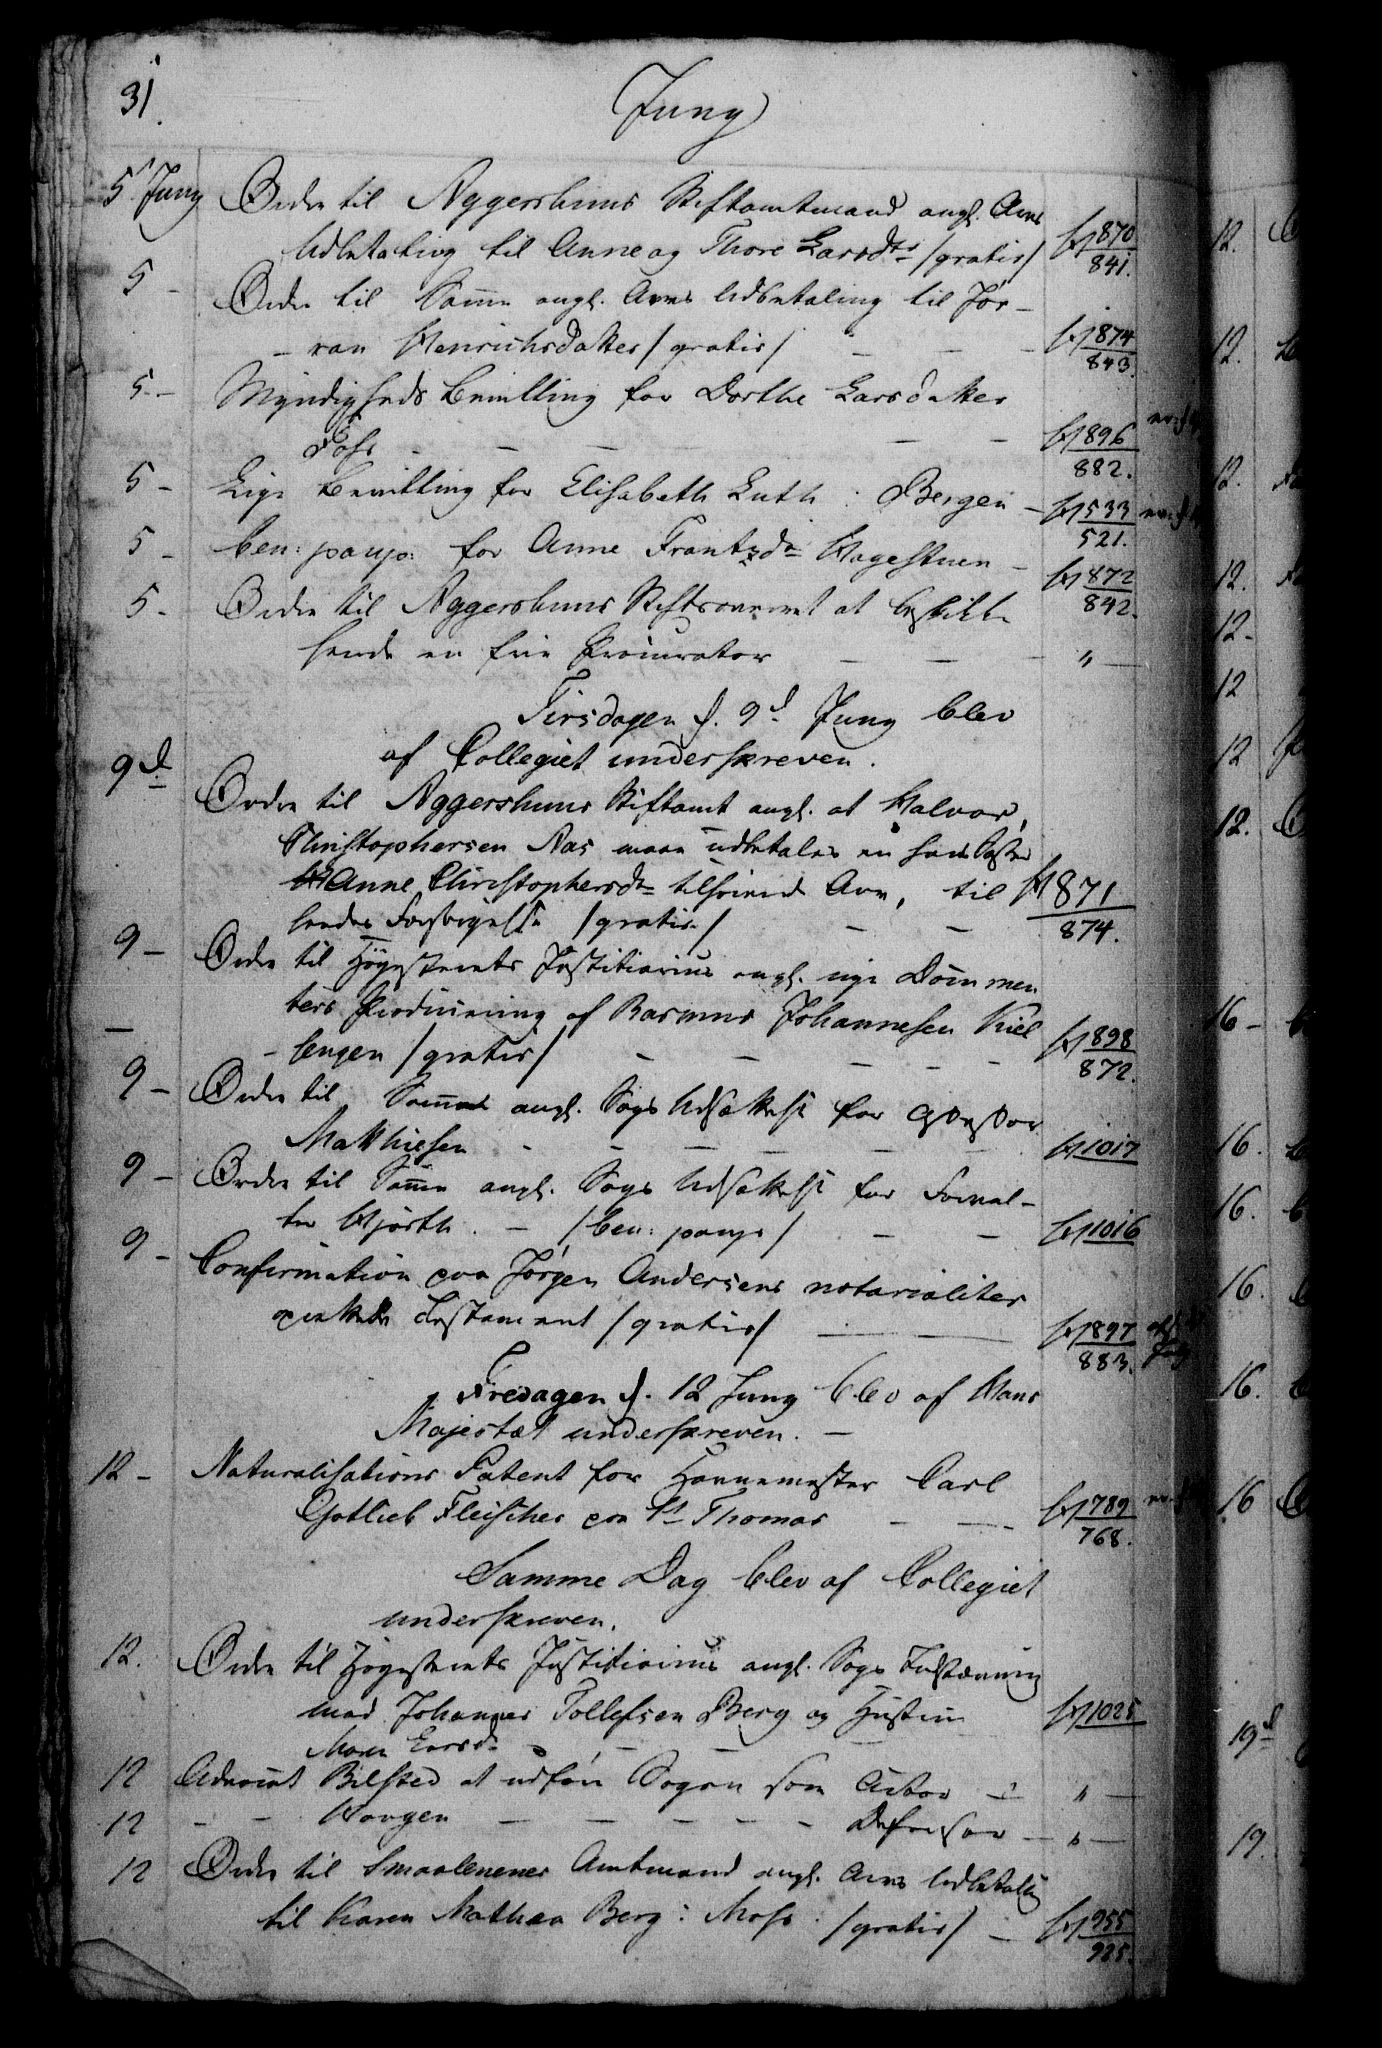 31.
Juny
5 Juny Ordre til Aggershuus Stiftamtmand angl. Arvs
Udbetaling til Anne og Thore Larsdtr /gratis/ 870
841.
5 - Ordre til Samme angl. Arvs Udbetaling til Jør-
- ran Henrichsdatter /gratis/ - - - 874
843.
5 - Myndigheds Bevilling for Dorthe Larsdatter
Foss - - - - - 896
882.
5 - Lige Bevilling for Elisabeth Luth : Bergen - 533
521.
5 - ben: paup: for Anne Frantzdr Hagestuen - 872
842.
5 - Ordre til Aggershuus at beskikke
hende en frie Procurator - - - "
Tirsdagen d. 9d Juny blev
af Collegiet underskreven.
9d Ordre til Aggershuus Stiftamt angl. at Halvor
Christophersen Aas maae udbetales en hans Søster
Anne Christophersdr tilfalden Arv, til 871
hendes Forsørgelse /gratis/ - - 874.
9 - Ordre til Høyesterets Justitiarius angl. nye Docummen
ters Producering af Rasmus Johannesen Kiel
- bengen /gratis/ - - - - - 898
872.
9 - Ordre til Samme angl. Sags Udsættelse for
Matthiesen - - - - - - 1017
9 - Ordre til Samme angl. Sags Udsættelse for Forval-
ter Hjorth. - /ben: paup/ - - 1016
9 - Confirmation paa Jørgen Andersens notarialiter
oprettede Testament /gratis/ - - 897
883.
Fredagen d. 12 Juny blev af Hans
Majestæt underskreven. -
12 - Naturalisations Patent for Havnemester Carl
Gotlieb Fleischer paa St Thomas - - 789
768.
Samme Dag blev af Collegiet
underskreven.
12. Ordre til Høyesterets Justitiarius angl. Sags
mod Johannes Tollefsen Berg og Hustrue 1025
Maren Larsdr - - -
12 Advocat Bilsted at udføre Sagen som Actor - "
12 - - Horgen - - - - - Defensor - " -
12 Ordre til Smaalenenes Amtmand angl. Arvs Udbetaling
til Karen Mathea Berg : Moss : /gratis/ - 955
925.
12.
12.
12.
12.
12-
12
12
12.
16 -
16.
16.
16.
16.
16
19d
19.